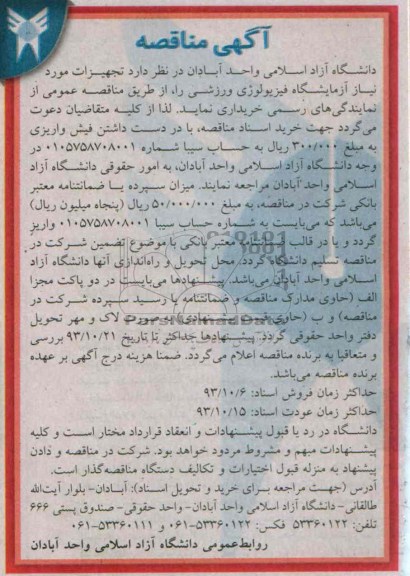 آگهی مناقصه
دانشگاه آزاد اسلامی واحد آبادان در نظر دارد تجهیزات مورد
نیاز آزمایشگاه فیزیولوژی ورزشی را، از طریق مناقصه عمومی از
نمایندگی‌های رسمی خریداری نماید. لذا از کلیه متقاضیان دعوت
می‌گردد جهت خرید اسناد مناقصه، با در دست داشتن فیش واریزی
به مبلغ ۳۰۰/۰۰۰ ریال به حساب سیبا شماره ۰۱۰۵۷۵۸۷۰۸۰۰۱ در
وجه دانشگاه آزاد اسلامی واحد آبادان، به امور حقوقی دانشگاه آزاد
اسلامی واحد آبادان مراجعه نمایند. میزان سپرده یا ضمانتنامه معتبر
بانکی شرکت در مناقصه، به مبلغ ۵۰/۰۰۰/۰۰۰ ریال (پنجاه میلیون ریال)
می‌باشد که می‌بایست به شماره حساب سیبا ۰۱۰۵۷۵۸۷۰۸۰۰۱ واریز
گردد و یا در قالب ضمانتنامه معتبر بانکی با موضوع تضمین شرکت در
مناقصه تسلیم دانشگاه گردد. محل تحویل و راه‌اندازی آنها دانشگاه آزاد
اسلامی واحد آبادان می‌باشد. پیشنهادها می‌بایست در دو پاکت مجزا
الف (حاوی مدارک مناقصه و ضمانتنامه یا رسید سپرده شرکت در
مناقصه) و ب (حاوی قیمت پیشنهادی) بصورت لاک و مهر تحویل
دفتر واحد حقوقی گردد. پیشنهادها حداکثر تا تاریخ ۹۳/۱۰/۲۱ بررسی
و متعاقبا به برنده مناقصه اعلام می‌گردد. ضمنا هزینه درج آگهی بر عهده
برنده مناقصه می‌باشد.
حداکثر زمان فروش اسناد: ۹۳/۱۰/۶
حداکثر زمان عودت اسناد: ۹۳/۱۰/۱۵
دانشگاه در رد یا قبول پیشنهادات و انعقاد قرارداد مختار است و کلیه
پیشنهادات مبهم و مشروط مردود خواهد بود. شرکت در مناقصه و دادن
پیشنهاد به منزله قبول اختیارات و تکالیف دستگاه مناقصه‌گذار است.
آدرس (جهت مراجعه برای خرید و تحویل اسناد): آبادان- بلوار آیت‌الله
طالقانی- دانشگاه آزاد اسلامی واحد آبادان- واحد حقوقی- صندوق پستی ۶۶۶
تلفن: ۵۳۳۶۰۱۲۲ فکس: ۵۳۳۶۰۱۲۲-۰۶۱ و ۵۳۳۶۰۱۱۱-۰۶۱
روابط‌عمومی دانشگاه آزاد اسلامی واحد آبادان